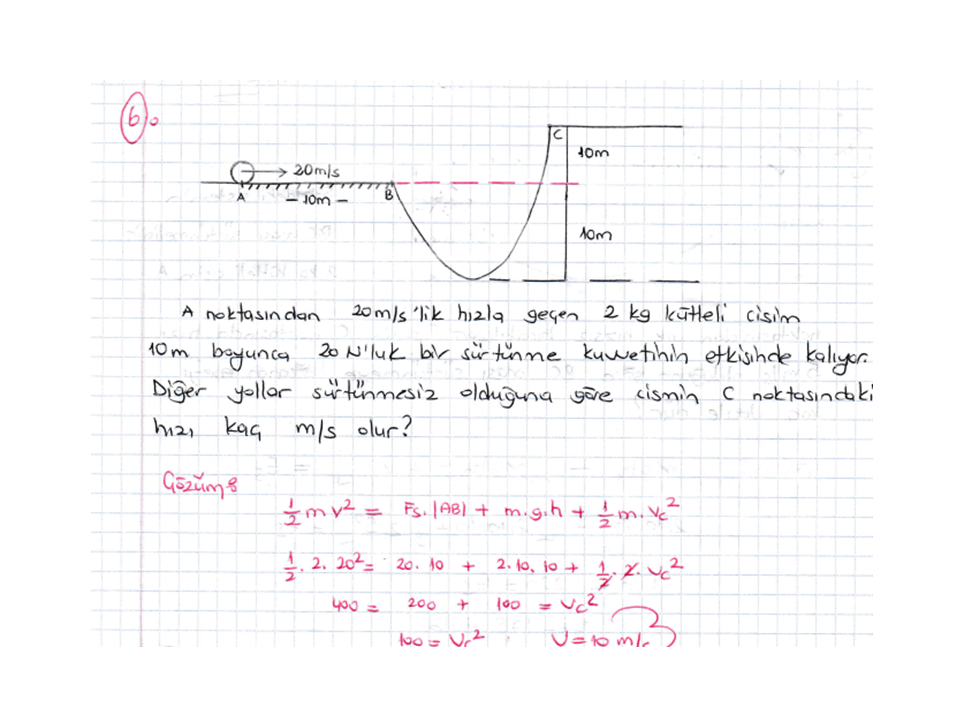 6.
C
10m
20m/s
A
- 10m -
B
10m
A noktasından 20m/s'lik hızla geçen 2 kg kütleli cisim
10m boyunca 20 N'luk bir sürtünme kuvvetinin etkisinde kalıyor.
Diğer yollar sürtünmesiz olduğuna göre cismin C noktasındaki
hızı kaç m/s olur?
Çözüm:
1/2 m v² = Fs. |AB| + m.g.h + 1/2 m. Vc²
1/2 . 2. 20² = 20. 10 + 2. 10. 10 + 1/2 . 2. Vc²
400 = 200 + 100 = Vc²
100 = Vc² V = 10 m/s